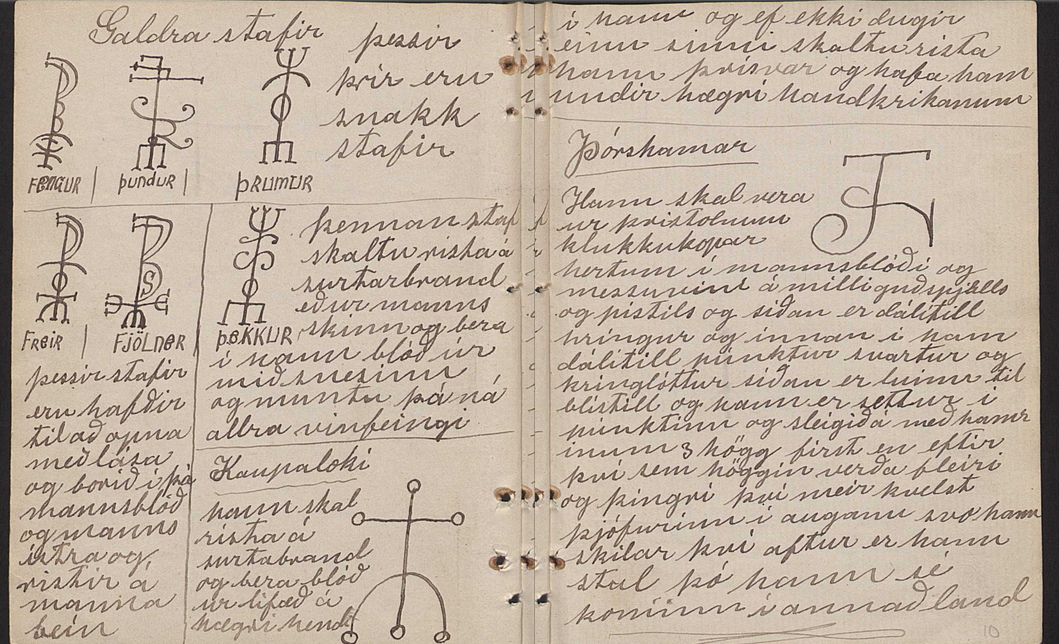 Galdra stafir
þessir
þrir eru
snakk
stafir
FENGUR
þUNDUR
ÞRUMUR
FREIR
FJÖLNER
þessir stafir
eru hafðir
til að opna
með lása
og borið í þá
mannsblóð
og manns
ístra og
ristir á
manna
bein
þEKKUR
þennan staf
skaltu rista á
surtarbrand
eður manns
skinn og bera
í hann blóð úr
miðsnesinu
og muntu þá ná
allra vinfeingi
Kaupaloki
hann skal
rista á
surtabrand
og bera blóð
ur lifæð á
hægri hendi
i hann og ef ekki dugir
einu sinni skaltu rista
hann þrisvar og hafa han
undir hægri handkrikanum
Þórshamar
Hann skal vera
ur þristolnum
klukkukopar
hertum i mannsblóði og
messuvini á milli guðspjalls
og pistils og siðan er dálitill
hringur og innan i ham
dálitill punktur svartur og
kringlóttur siðan er búinn til
blistill og hann er settur i
punktinn og sleigið á með hamr
inum 3 högg first en eftir
því sem höggin verða fleiri
og þingri því meir kvelst
þjófurinn i augann svo hann
skilar því aftur er hann
stal þó hann sé
kominn i annað land
10